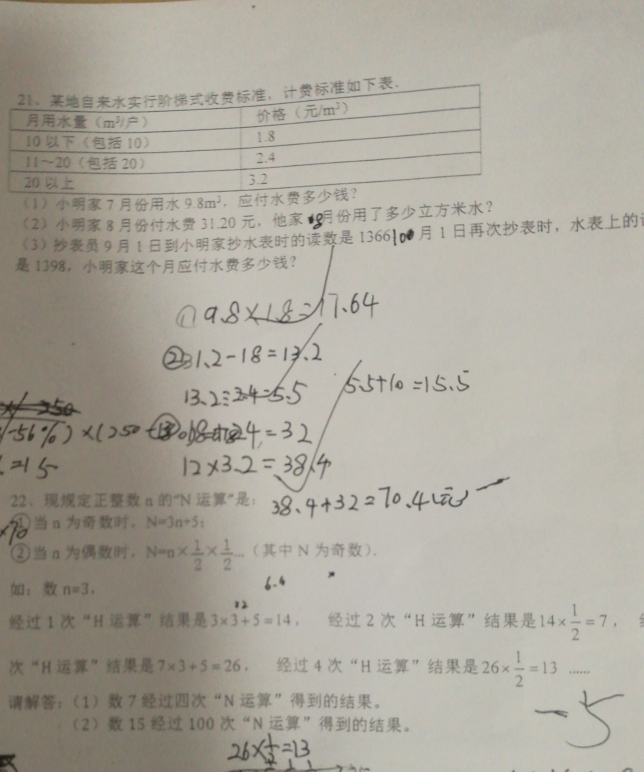 21、某地自来水实行阶梯式收费标准，计费标准如下表.
月用水量（m³/户） 价格（元/m³）
10 以下（包括 10） 1.8
11～20（包括 20） 2.4
20 以上 3.2
（1）小明家 7 月份用水 9.8m³，应付水费多少钱？
（2）小明家 8 月份付水费 31.20 元，他家 8月份用了多少立方米水？
（3）抄表员 9 月 1 日到小明家抄水表时的读数是 1366，10 月 1 日再次抄表时，水表上的
是 1398，小明家这个月应付水费多少钱？
① 9.8×1.8=17.64
②31.2-18=13.2
13.2÷2.4=5.5 5.5+10=15.5
-56%)×(250
=32
=15
12×3.2=38.4
38.4+32=70.4(元)
22、现规定正整数 n 的“N 运算”是：
①当 n 为奇数时，N=3n+5；
×70
②当 n 为偶数时，N=n×1/2×1/2…（其中 N 为奇数）.
如：数 n=3，
6.4
32
经过 1 次“H 运算”结果是3×3+5=14， 经过 2 次“H 运算”结果是14×1/2=7，
次“H 运算”结果是7×3+5=26， 经过 4 次“H 运算”结果是26×1/2=13 ……
请解答：（1）数 7 经过四次“N 运算”得到的结果。
（2）数 15 经过 100 次“N 运算”得到的结果。
-5
26×1/2=13